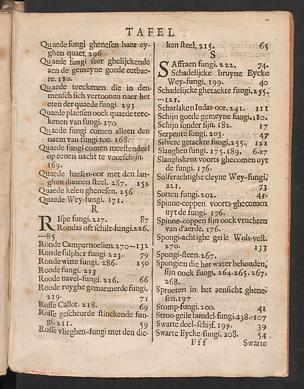 TAFEL
Quaede fungi ghenesen haer ey-
ghen quaet. 296
Quaede fungi seer ghelijckende
aen de gemeyne goede eetbae-
re. 180.
Quaede teeckenen die in den
mensch sich vertoonen naer het
eten der quaede fungi. 293
Quaede plaetsen oock quaede teec-
kenen van fungi. 170
Quaede fungi comen alleen den
naem van fungi toe. 168.
Quaede fungi comen meestendeel
op eenen nacht te voorschijn.
169.
Quaede haesen-oor met den lan-
ghen dunnen steel. 287. 152
Quaede keien ghenesen. 256
Quaede Wey-fungi. 171.
R
Rispe fungi. 217. 87
Rondas oft schilt-fungi. 226.
—85
Ronde Campernoelien. 270—132
Ronde sulpher fungi. 223. 79
Ronde witte fungi. 286. 150
Roode fungi. 213
Roode navel-fungi. 216. 66
Roode ruyghe gemarmerde fungi.
219. 71
Rosse Callot. 218. 69
Rosse gescheurde stinckende fun-
gi. 211. 59
Rosse vlieghen-fungi met den dic-
ken steel. 215. 65
S
Saffraen fungi. 222. 74.
Schadelijcke bruyne Eycke
Wey-fungi. 199. 40
Schadelijcke ghetackte fungi. 255.
—121.
Scharlaken Iudas-oor. 241. 111
Schijn goede gemeyne fungi. 180.
Schijn sonder sijn. 182. 17
Serpente fungi. 203. 47
Silvere getackte fungi. 255. 121
Slaughen fungi. 175. 189. 6—27
Slanghskens voorts ghecomen uyt
de fungi. 176.
Solferachtighe cleyne Wey-fungi.
221. 73
Sotten fungi. 202. 45
Spinne-coppen voorts ghecomen
uyt de fungi. 176.
Spinne-coppen sijn oock vruchten
van d'aerde. 176.
Spongi-achtighe geile Wols-vest.
270. 133
Spongi-steen. 267.
Spongien die het water behouden,
sijn oock fungi. 264. 265. 267.
268.
Sproeten in het aensicht ghene-
sen. 197
Stomp-fungi. 200. 41
Stroo-geile bundel-fungi. 238—107
Swarte doel-schijf. 199. 39
Swarte Eycke-fungi. 208. 54
Fff Swarte